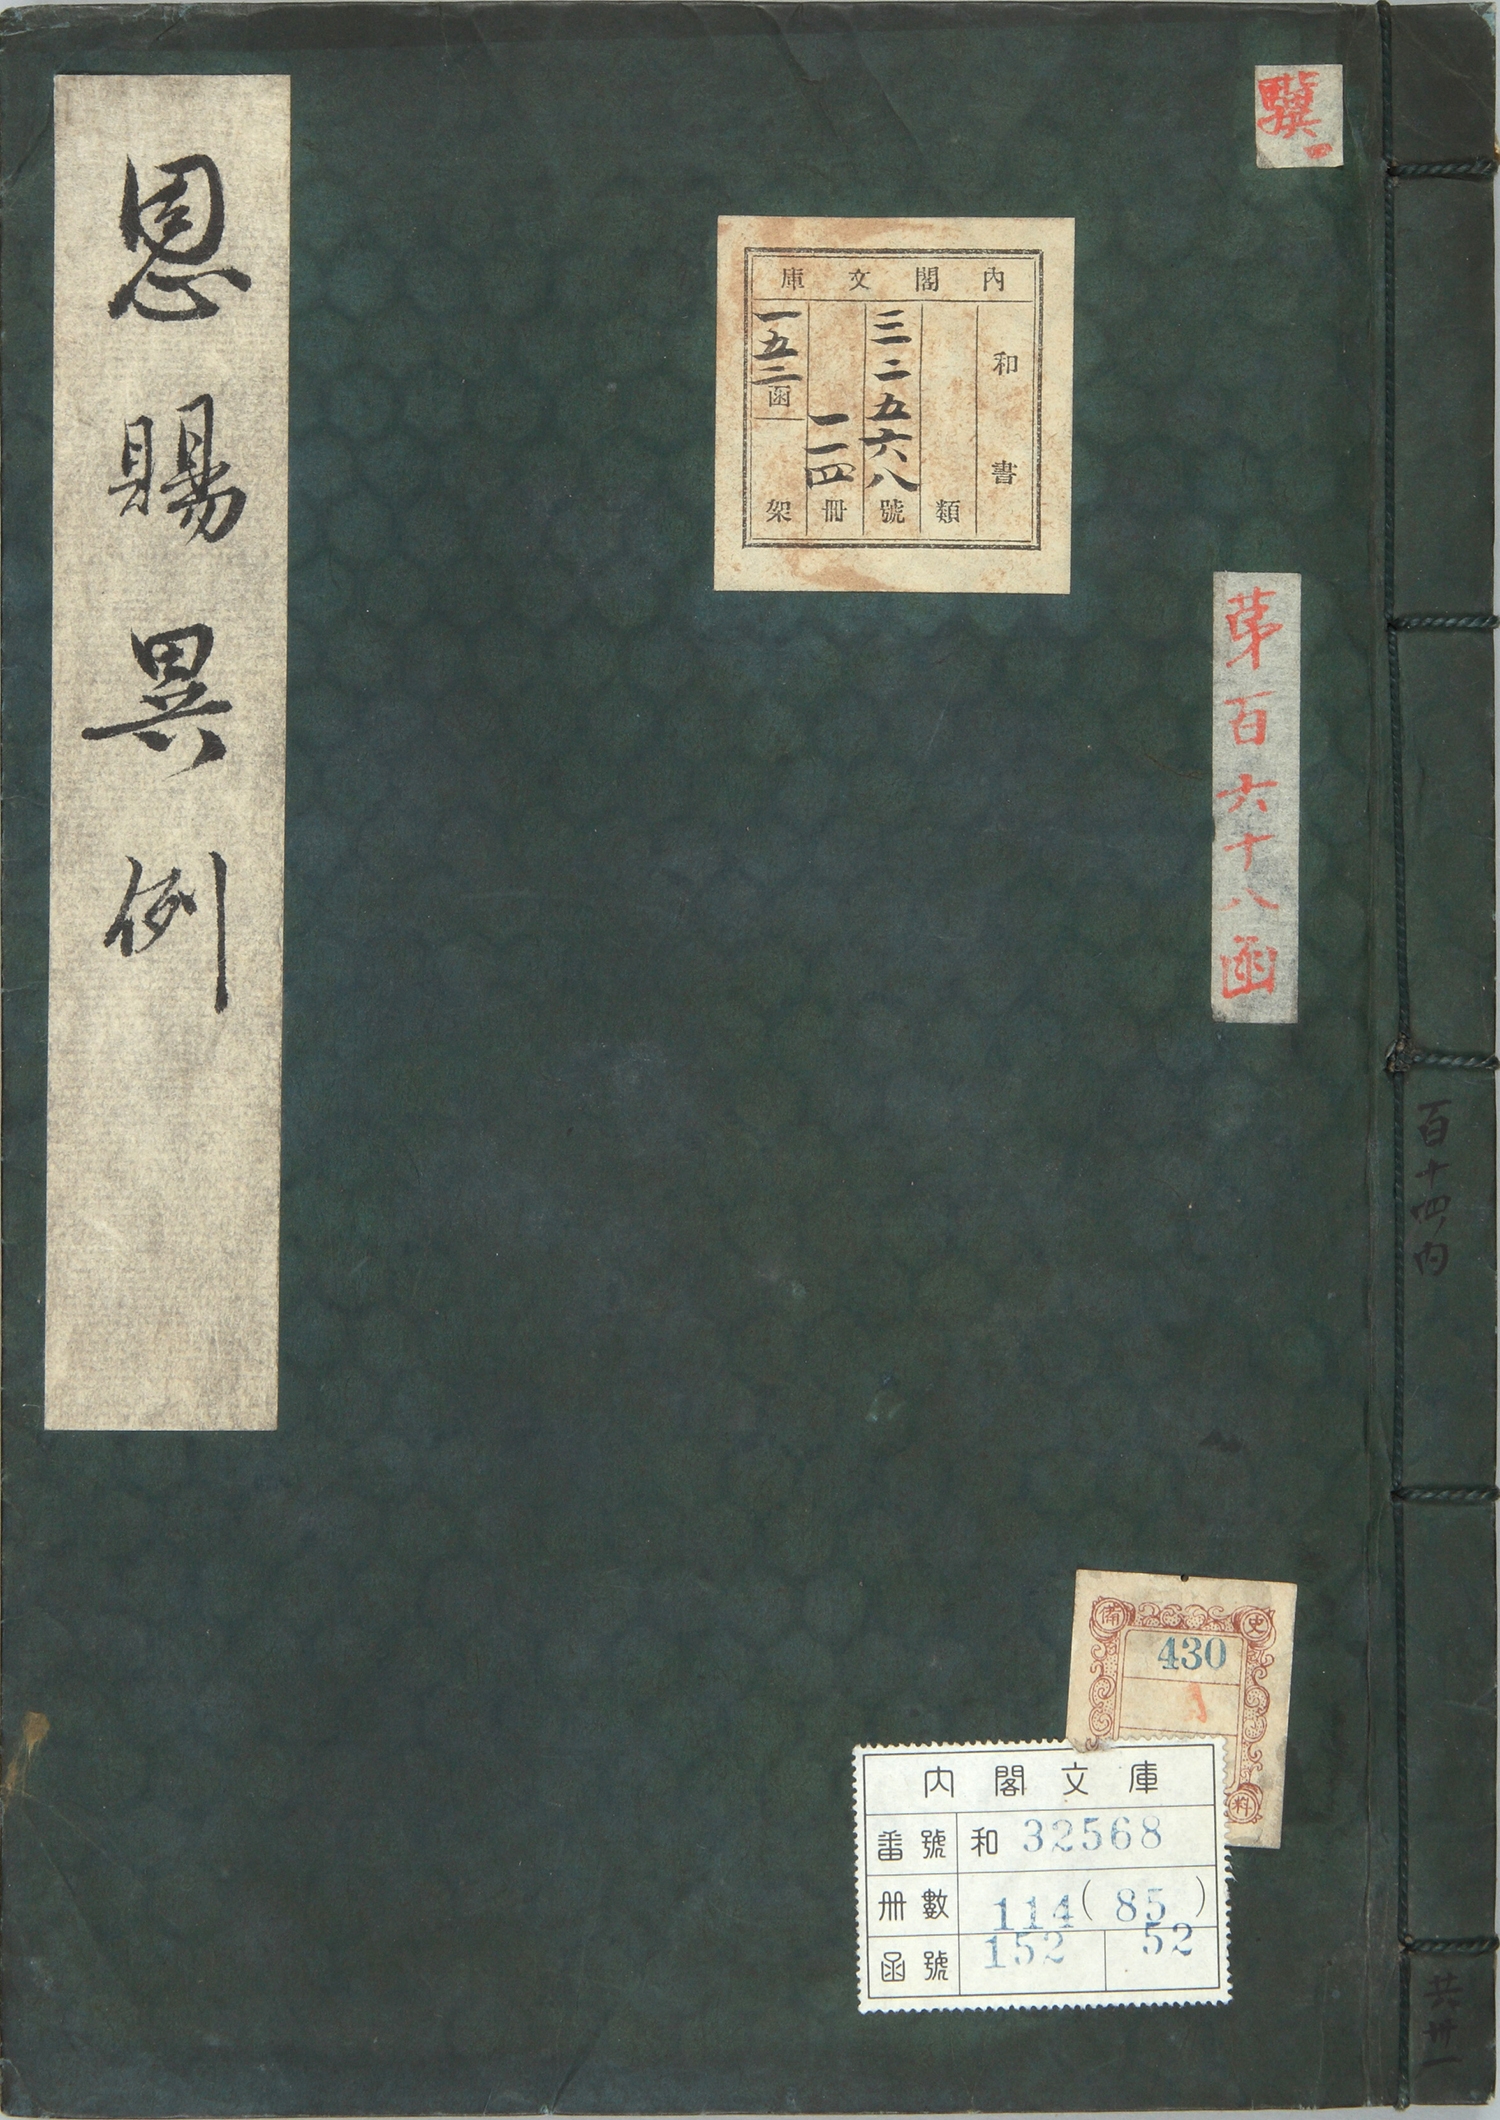 驥一
第百六十八函
百十四ノ内
共卅一
內閣文庫
和書
類
三二五六八號
一一四冊
一五二函
架
恩賜異例
備史
430
料
内閣文庫
番號 和 32568
册數 114(85)
函號 152 52